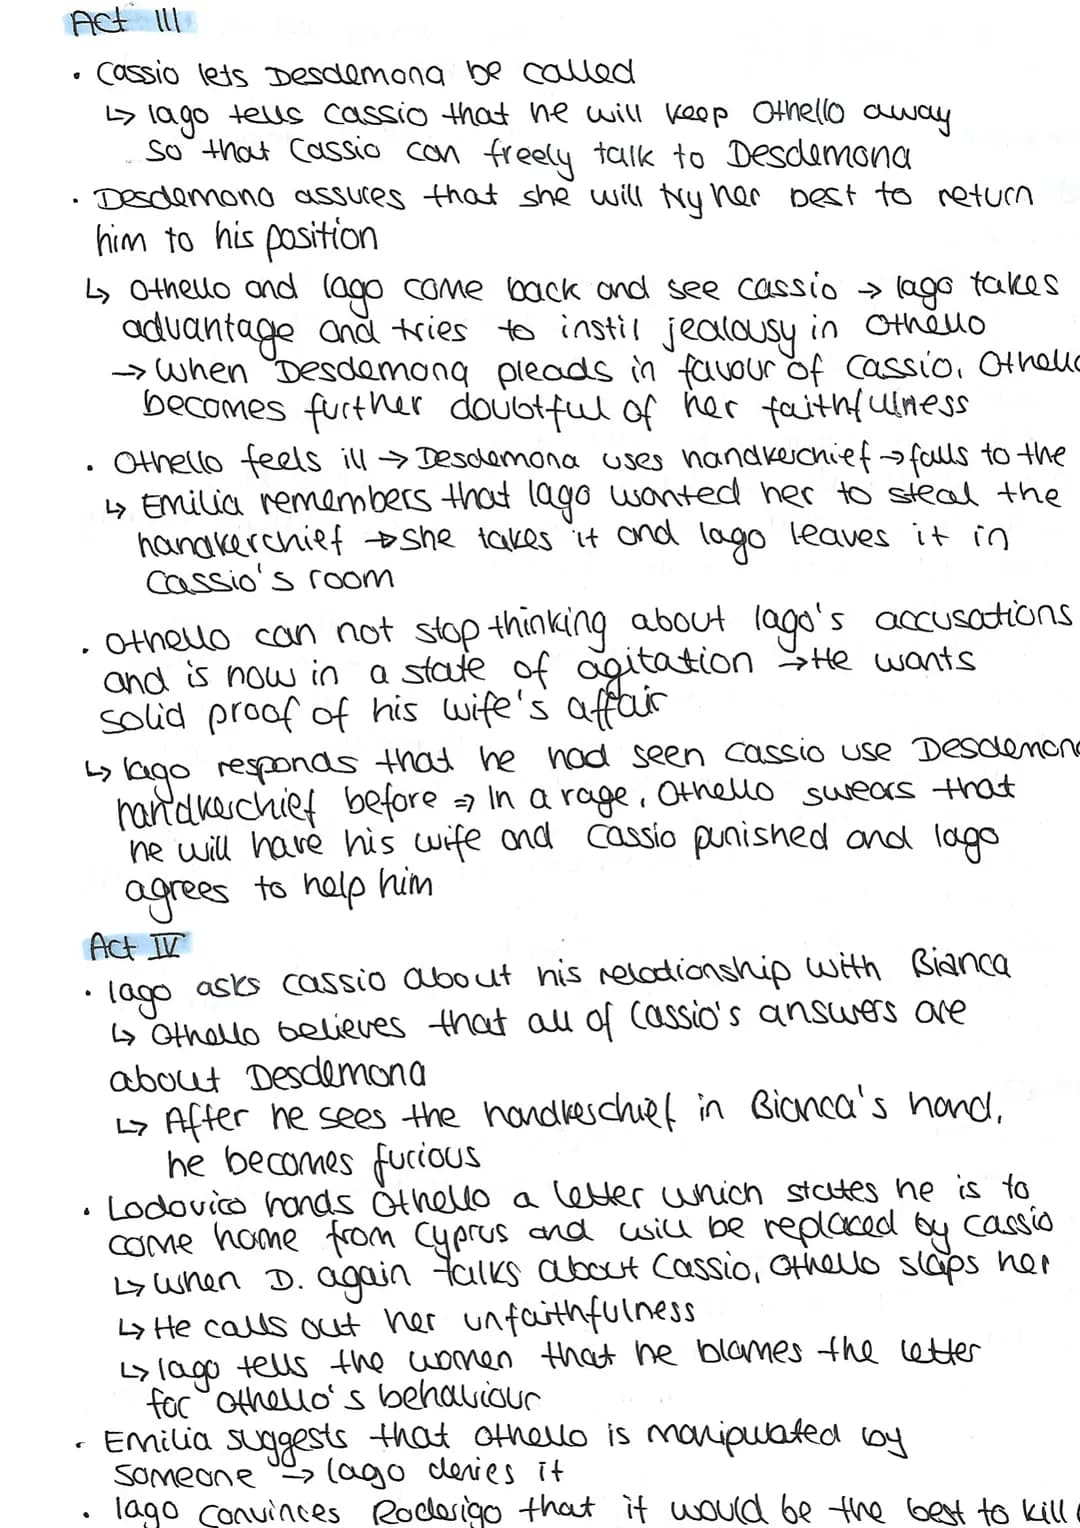 Act III
• Cassio lets Desdemona be called
↳ Iago tells Cassio that he will keep Othello away
so that Cassio can freely talk to Desdemona
• Desdemona assures that she will try her best to return
him to his position
↳ Othello and Iago come back and see Cassio → Iago takes
advantage and tries to instil jealousy in Othello
→ When Desdemona pleads in favour of Cassio, Othello
becomes further doubtful of her faithfulness
• Othello feels ill → Desdemona uses handkerchief → falls to the
↳ Emilia remembers that Iago wanted her to steal the
handkerchief → she takes it and Iago leaves it in
Cassio's room
• Othello can not stop thinking about Iago's accusations
and is now in a state of agitation → He wants
solid proof of his wife's affair
↳ Iago responds that he had seen Cassio use Desdemona
handkerchief before ⇒ In a rage, Othello swears that
he will have his wife and Cassio punished and Iago
agrees to help him
Act IV
• Iago asks Cassio about his relationship with Bianca
↳ Othello believes that all of Cassio's answers are
about Desdemona
↳ After he sees the handkerchief in Bianca's hand,
he becomes furious
• Lodovico hands Othello a letter which states he is to
come home from Cyprus and will be replaced by Cassio
↳ When D. again talks about Cassio, Othello slaps her
↳ He calls out her unfaithfulness
↳ Iago tells the women that he blames the letter
for Othello's behaviour
• Emilia suggests that Othello is manipulated by
someone → Iago denies it
• Iago convinces Roderigo that it would be the best to kill